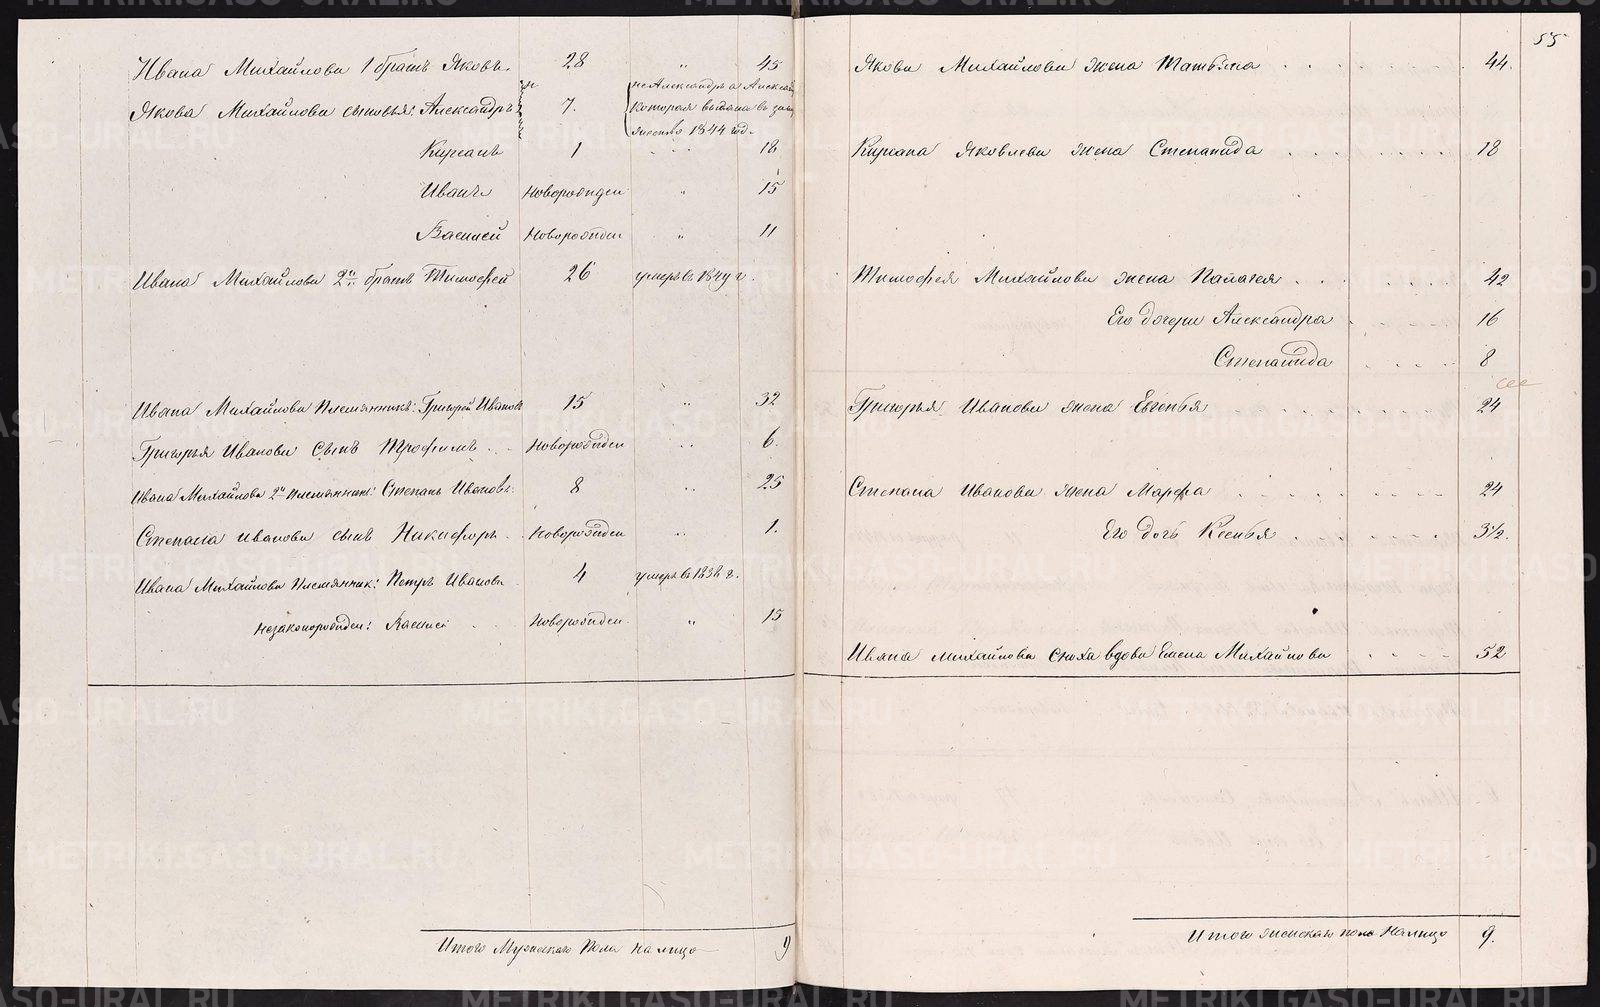 55
Ивана Михайлова 1 братъ Яковъ. 28 " 45
Якова Михайлова сыновья: Александръ 7. не Александръ а Алексан
которая выдана въ заму
жество 1844 год.
Кирсанъ 1 " 18
Иванъ новорожден " 15
Василей новорожден " 11
Ивана Михайлова 2й братъ Тимофей 26 умеръ въ 1849 г.
Ивана Михайлова племянникъ: Григорей Ивановъ 15 " 32
Григорья Иванова сынъ Трофимъ новорожден " 6
Ивана Михайлова 2й племянник: Степанъ Ивановъ. 8 " 25
Степана Иванова сынъ Никифоръ новорожден " 1.
Ивана Михайлова племянник: Петръ Иванова 4 умеръ въ 1838 г.
незаконорожден: Василей новорожден " 15
Итого Мужескаго Пола на лицо 9
Якова Михайлова жена Татьяна 44.
Кирсана Яковлева жена Степанида 18
Тимофея Михайлова жена Палагея 42
Его дочери Александра 16
Степанида 8
Григорья Иванова жена Евгенья 24
Степана Иванова жена Марфа 24
Его дочь Ксенья 3½.
Ивана Михайлова сноха вдова Елена Михайлова 52
Итого женскаго пола налицо 9.
METRIKI.GASO-URAL.RU